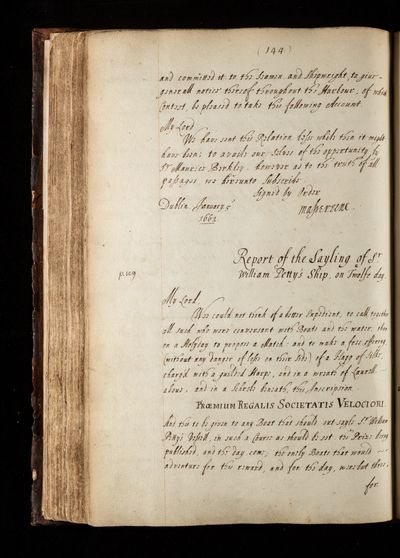 (144)
and committed it to the Seamen and Shipwright, to giue
generall notice thereof throughout the Harbour, of which
Contest, be pleased to take the following Account.
My Lord
We haue sent this Relation lesse whole then it might
haue been; to availe our selues of the opportunity by
Sr Maurice Berkley. however as to the truth of all
passages, we hereunto Subscribe
Signed by Order
Dublin January
1663
Massereene
Report of the Sayling of Sr
William Petty's Ship, on Twelfe day.
p. 109.
My Lord,
Wee could not think of a better Expedient, to call together
all such who were conversant with Boats and the water, then
on a Holyday to propose a Match and to make a free offering
(without any danger of losse on their Side) of a Flagg of Silke,
charg'd with a guilded Harpe, and in a wreath of Laurell
aboue, and in a Scrole beneath, this Inscription
PRÆMIUM REGALIS SOCIETATIS VELOCIORI.
And this to be given to any Boat that should out sayle Sr William
Petty's Vessell, in such a Course as should be set. the Prize being
published, and the day come, the onely Boats that would
adventure for the reward, and for the day, were but three,
for